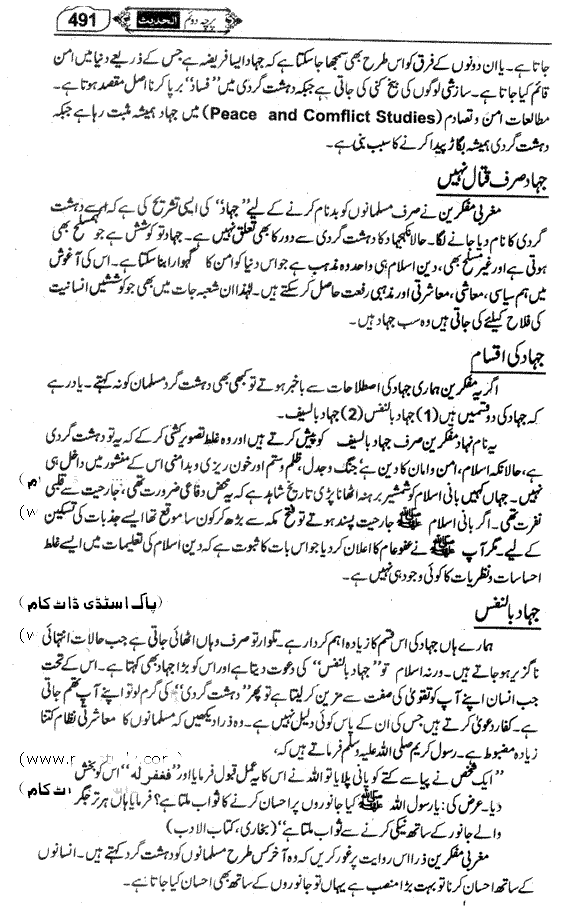 491 الحدیث پرچہ دوئم
جاتا ہے۔ یا ان دونوں کے فرق کو اس طرح بھی سمجھا جا سکتا ہے کہ جہاد ایسا فریضہ ہے جس کے ذریعے دنیا میں امن
قائم کیا جاتا ہے۔ سازشی لوگوں کی بیخ کنی کی جاتی ہے جبکہ دہشت گردی میں "فساد" برپا کرنا اصل مقصد ہوتا ہے۔
مطالعات امن و تصادم (Peace and Comflict Studies) میں جہاد ہمیشہ مثبت رہا ہے جبکہ
دہشت گردی ہمیشہ بگاڑ پیدا کرنے کا سبب بنی ہے۔
جہاد صرف قتال نہیں
مغربی مفکرین نے صرف مسلمانوں کو بدنام کرنے کے لیے "جہاد" کی ایسی تشریح کی ہے کہ اسے دہشت
گردی کا نام دیا جانے لگا۔ حالانکہ جہاد کا دہشت گردی سے دور کا بھی تعلق نہیں ہے۔ جہاد تو کوشش ہے جو مسلح بھی
ہوتی ہے اور غیر مسلح بھی، دین اسلام ہی واحد وہ مذہب ہے جو اس دنیا کو امن کا گہوارا بنا سکتا ہے۔ اس کی آغوش
میں ہم سیاسی، معاشی، معاشرتی اور مذہبی رفعت حاصل کر سکتے ہیں۔ لہٰذا ان شعبہ جات میں بھی جو کوششیں انسانیت
کی فلاح کیلئے کی جاتی ہیں وہ سب جہاد ہیں۔
جہاد کی اقسام
اگر یہ مفکرین ہماری جہاد کی اصطلاحات سے باخبر ہوتے تو کبھی بھی دہشت گرد مسلمان کو نہ کہتے۔ یاد رہے
کہ جہاد کی دو قسمیں ہیں (1) جہاد بالنفس (2) جہاد بالسیف۔
یہ نام نہاد مفکرین صرف جہاد بالسیف کو پیش کرتے ہیں اور وہ غلط تصویر کشی کر کے کہ یہ تو دہشت گردی
ہے، حالانکہ اسلام، امن و امان کا دین ہے جنگ و جدل، ظلم و ستم اور خون ریزی و بدامنی اس کے منشور میں داخل ہی
نہیں۔ جہاں کہیں بانی اسلام کو شمشیر برہنہ اٹھانا پڑی تاریخ شاہد ہے کہ یہ محض دفاعی ضرورت تھی، جارحیت سے قلبی
نفرت تھی۔ اگر بانی اسلام ﷺ جارحیت پسند ہوتے تو فتح مکہ سے بڑھ کر کون سا موقع تھا ایسے جذبات کی تسکین
کے لیے۔ مگر آپ ﷺ نے عفو عام کا اعلان کر دیا جو اس بات کا ثبوت ہے کہ دین اسلام کی تعلیمات میں ایسے غلط
احساسات و نظریات کا کوئی وجود ہی نہیں ہے۔
جہاد بالنفس
(پاک اسٹڈی ڈاٹ کام)
ہمارے ہاں جہاد کی اس قسم کا زیادہ اہم کردار ہے۔ تلوار تو صرف وہاں اٹھائی جاتی ہے جب حالات انتہائی
ناگزیر ہو جاتے ہیں۔ ورنہ اسلام تو "جہاد بالنفس" کی دعوت دیتا ہے اور اس کو بڑا جہاد بھی کہتا ہے۔ اس کے تحت
جب انسان اپنے آپ کو تقویٰ کی صفت سے مزین کر لیتا ہے تو پھر "دہشت گردی" کی گرم لو تو اپنے آپ تھم جاتی
ہے۔ کفار دعویٰ کرتے ہیں جس کی ان کے پاس کوئی دلیل نہیں ہے۔ وہ ذرا دیکھیں کہ مسلمانوں کا معاشرتی نظام کتنا
زیادہ مضبوط ہے۔ رسول کریم صلی اللہ علیہ وسلم فرماتے ہیں کہ،
"ایک شخص نے پیاسے کتے کو پانی پلایا تو اللہ نے اس کا یہ عمل قبول فرمایا اور "فغفر له" اس کو بخش
دیا۔ عرض کی: یا رسول اللہ ﷺ کیا جانوروں پر احسان کرنے کا ثواب ملتا ہے؟ فرمایا ہاں ہر تر جگر
والے جانور کے ساتھ نیکی کرنے سے ثواب ملتا ہے" (بخاری، کتاب الادب)
مغربی مفکرین ذرا اس روایت پر غور کریں کہ وہ آخر کس طرح مسلمانوں کو دہشت گرد کہتے ہیں۔ انسانوں
کے ساتھ احسان کرنا تو بہت بڑا منصب ہے یہاں تو جانوروں کے ساتھ بھی احسان کیا جاتا ہے۔